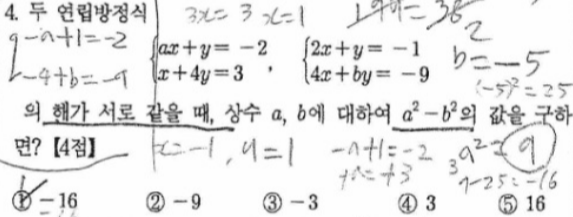 4. 두 연립방정식 3x=3 x=1
-a+1=-2
-4+b=-9
{ax+y=-2 {2x+y=-1 b=-5
{x+4y=3 , {4x+by=-9 (-5)²=25
의 해가 서로 같을 때, 상수 a, b에 대하여 a²-b²의 값을 구하
면? 【4점】 x=-1, y=1 -a+1=-2 a²=9
a=+3 9-25=-16
① -16 ② -9 ③ -3 ④ 3 ⑤ 16